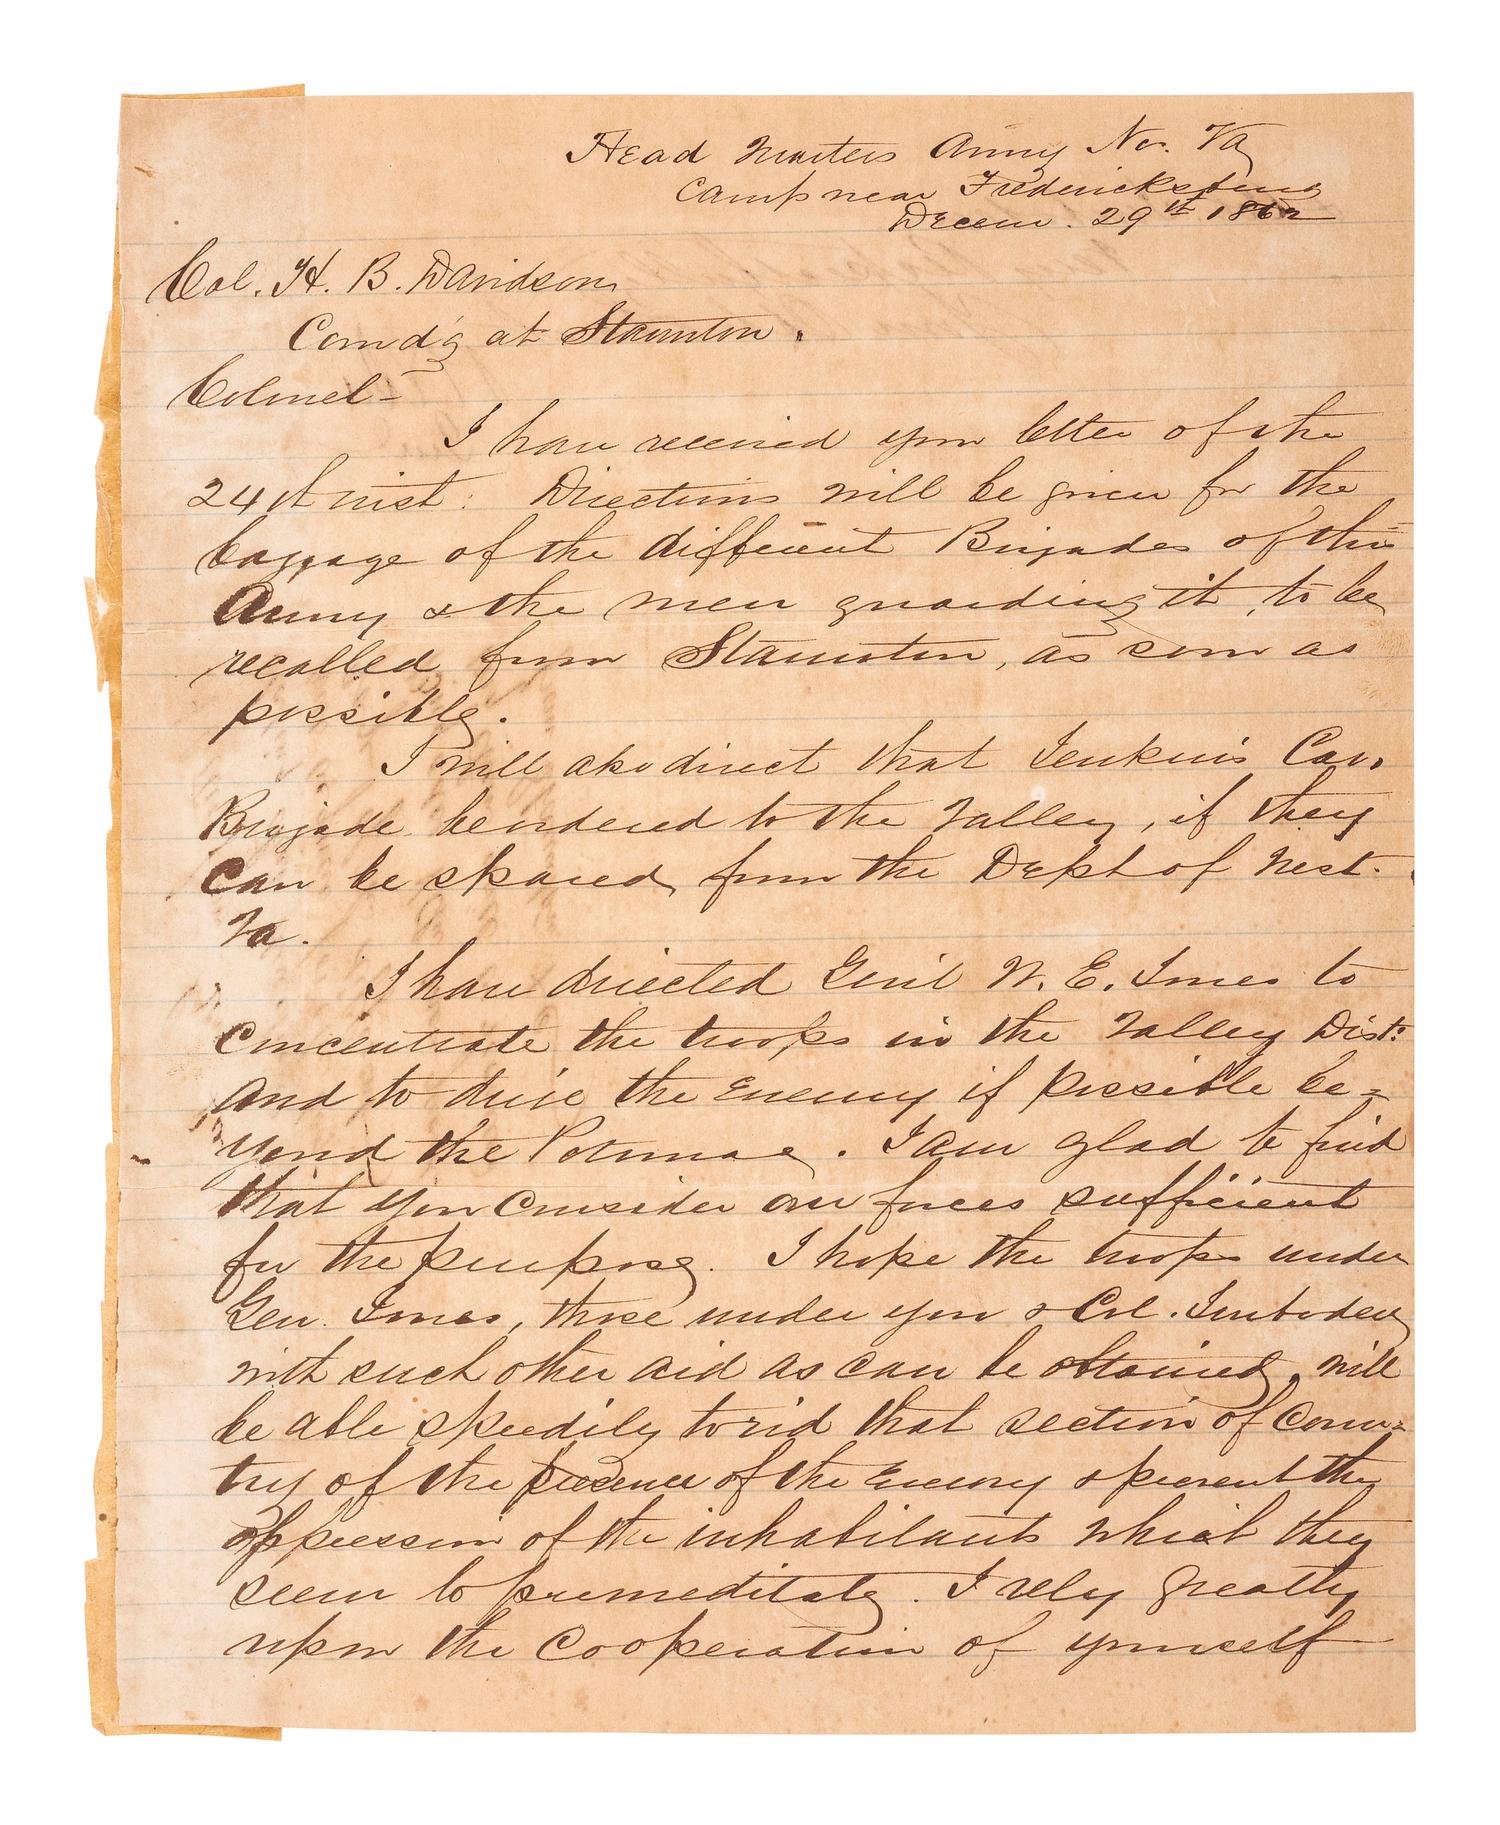 Head Quarters Army No. Va
Camp near Fredericksburg
Decem. 29th 1862
Col. H. B. Davidson
Comd'g at Staunton.
Colonel-
I have received your letter of the
24th inst: Directions will be given for the
baggage of the different Brigades of this
Army & the men guarding it, to be
recalled from Staunton, as soon as
possible.
I will also direct that Jenkins Cav.
Brigade be ordered to the Valley, if they
can be spared from the Dept of West.
Va.
I have directed Genl W. E. Jones to
concentrate the troops in the Valley Dist:
and to drive the Enemy if possible be=
yond the Potomac. I am glad to find
that you consider our forces sufficient
for the purpose. I hope the troops under
Gen. Jones, those under you & Col. Imboden
with such other aid as can be obtained, will
be able speedily to rid that section of Coun=
try of the presence of the Enemy & prevent the
oppression of the inhabitants which they
seem to premeditate. I rely greatly
upon the Cooperation of yourself